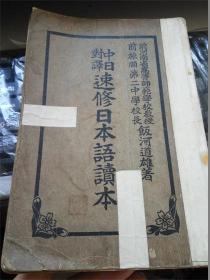 師範學校教授
前旅順第二中學校長
飯河道雄著
中日
對譯
速修日本語讀本